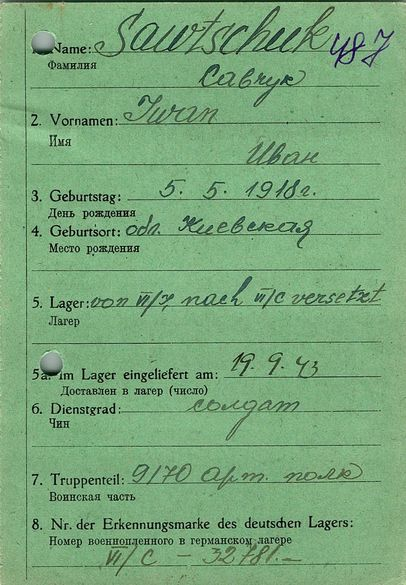 1. Name: Sawtschuk 487
Фамилия
Савчук
2. Vornamen: Iwan
Имя
Иван
3. Geburtstag: 5. 5. 1918г.
День рождения
4. Geburtsort: обл. Киевская
Место рождения
5. Lager: von VI/K nach VI/C versetzt
Лагер
5a. Im Lager eingeliefert am: 19. 9. 43
Доставлен в лагер (число)
6. Dienstgrad: солдат
Чин
7. Truppenteil: 9/70 арт. полк
Воинская часть
8. Nr. der Erkennungsmarke des deutschen Lagers:
Номер военнопленного в германском лагере
VI/C - 32781.-